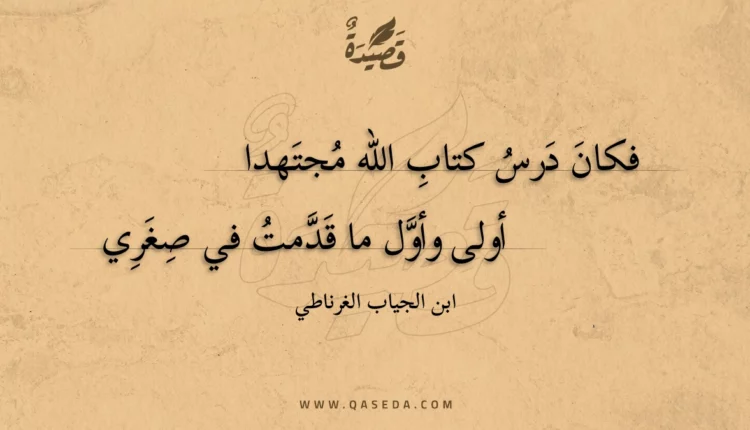 قَصِيْدَةٌ
فكانَ دَرسُ كتابِ الله مُجتَهدا
أولى وأوَّل ما قَدَّمتُ في صِغَرِي
ابن الجياب الغرناطي
WWW.QASEDA.COM